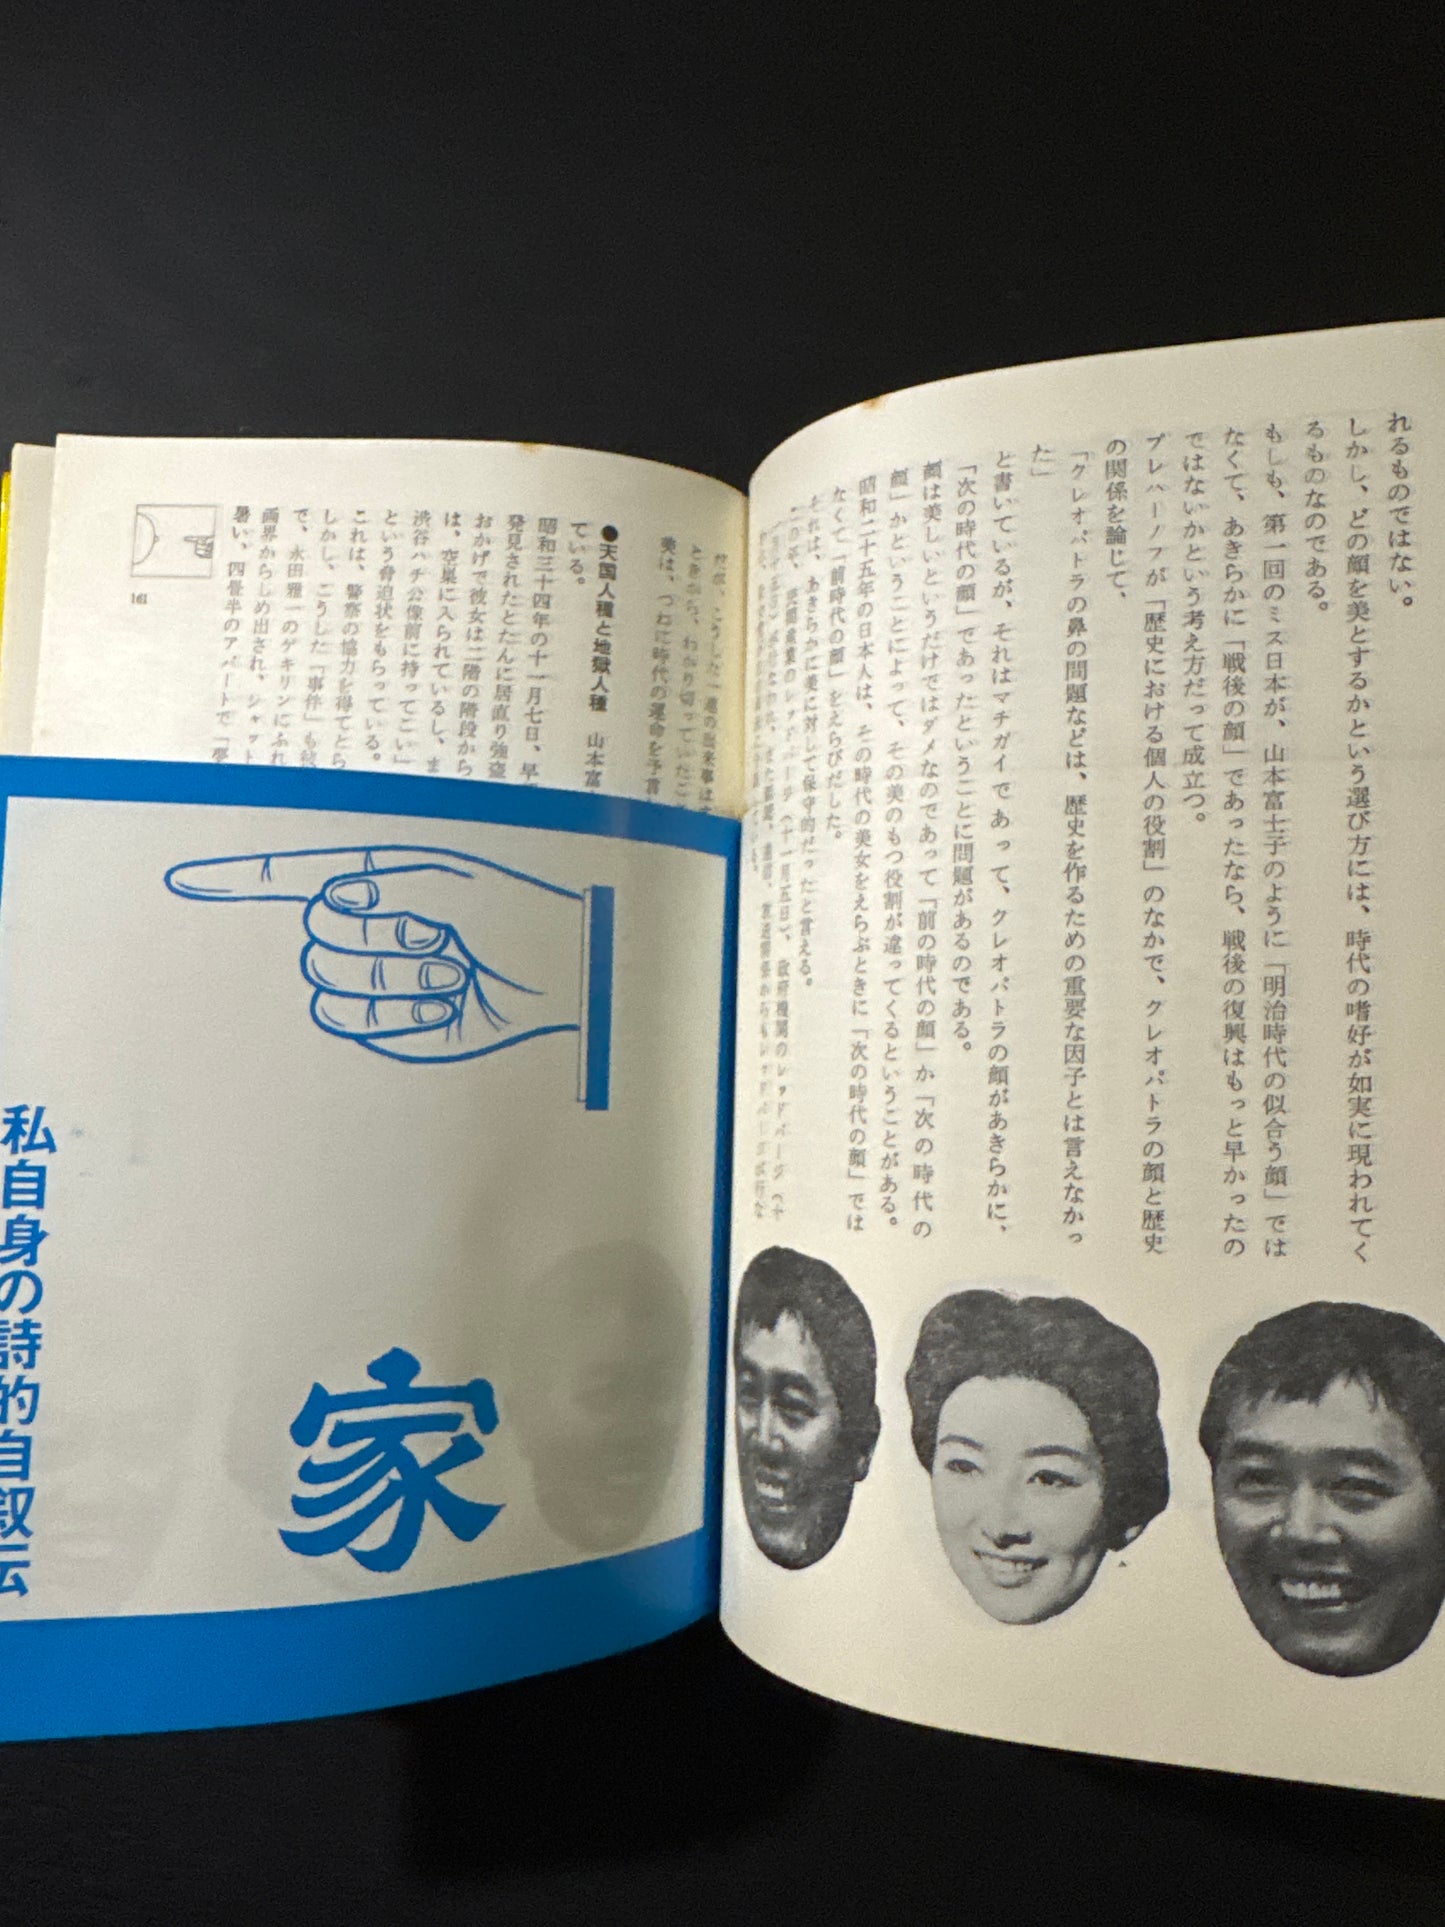 れるものではない。
しかし、どの顔を美とするかという選び方には、時代の嗜好が如実に現われてく
るものなのである。
もしも、第一回のミス日本が、山本富士子のように「明治時代の似合う顔」では
なくて、あきらかに「戦後の顔」であったなら、戦後の復興はもっと早かったの
ではないかという考え方だって成立つ。
プレハーノフが「歴史における個人の役割」のなかで、クレオパトラの顔と歴史
の関係を論じて、
「クレオパトラの鼻の問題などは、歴史を作るための重要な因子とは言えなかっ
た」
と書いているが、それはマチガイであって、クレオパトラの顔があきらかに、
「次の時代の顔」であったということに問題があるのである。
顔は美しいというだけではダメなのであって「前の時代の顔」か「次の時代の
顔」かということによって、その美のもつ役割が違ってくるということがある。
昭和二十五年の日本人は、その時代の美女をえらぶときに「次の時代の顔」では
なくて「前時代の顔」をえらびだした。
それは、あきらかに美に対して保守的だったと言える。
この年、民間産業のレッドパージ(十一月五日)、政府機関のレッドパージ(十
だが、こうした一連の出来事は
ときから、わかり切っていたこ
美は、つねに時代の運命を予言
●天国人種と地獄人種 山本富
ている。
昭和三十四年の十一月七日、早
発見されたとたんに居直り強盗
おかげで彼女は二階の階段から
は、空巣に入られているし、ま
渋谷ハチ公像前に持ってこい」
という脅迫状をもらっている。
これは、警察の協力を得てとら
しかし、こうした「事件」も彼
で、永田雅一のゲキリンにふれ
画界からしめ出され、シャット
暑い、四畳半のアパートで「愛
161
家
私自身の詩的自叙伝